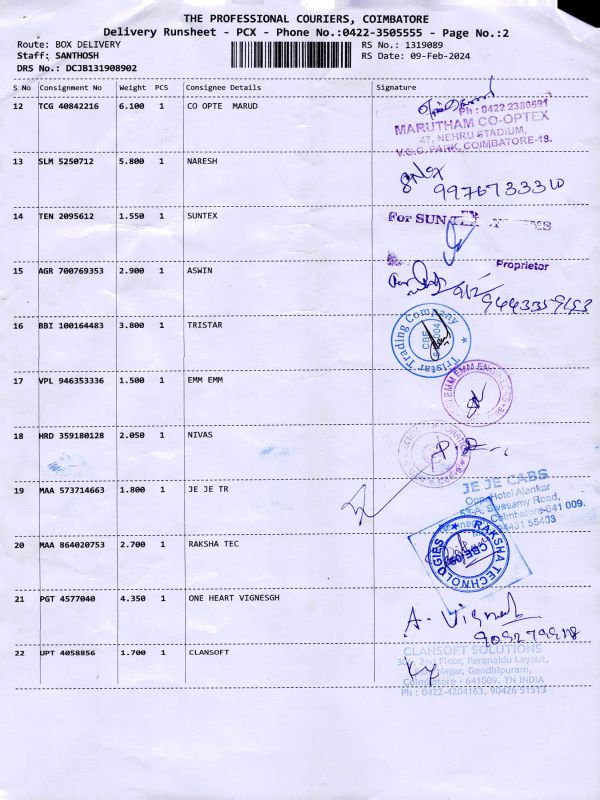 THE PROFESSIONAL COURIERS, COIMBATORE
Delivery Runsheet - PCX - Phone No.:0422-3505555 - Page No.:2
Route: BOX DELIVERY RS No.: 1319089
Staff: SANTHOSH RS Date: 09-Feb-2024
DRS No.: DCJB131908902
S No Consignment No Weight PCS Consignee Details Signature
12 TCG 40842216 6.100 1 CO OPTE MARUD
Ph : 0422 2380591
MARUTHAM CO-OPTEX
47, NEHRU STADIUM,
V.O.C. PARK, COIMBATORE-18.
13 SLM 5250712 5.800 1 NARESH
9976733310
14 TEN 2095612 1.550 1 SUNTEX
For SUN
Proprietor
15 AGR 700769353 2.900 1 ASWIN
9443359193
16 BBI 100164483 3.800 1 TRISTAR
Tristar Trading Company
CBE
17 VPL 946353336 1.500 1 EMM EMM
EMM EMM
18 HRD 359180128 2.050 1 NIVAS
19 MAA 573714663 1.800 1 JE JE TR
JE JE CABS
Opp. Hotel Alankar
53-A, Sivasamy Road,
Coimbatore-641 009.
55403
20 MAA 864020753 2.700 1 RAKSHA TEC
RAKSHA TECHNOLOGIES
21 PGT 4577040 4.350 1 ONE HEART VIGNESGH
A. Vignesh
22 UPT 4058856 1.700 1 CLANSOFT
CLANSOFT SOLUTIONS
2nd Floor, Peranaidu Layout,
Nagar, Gandhipuram,
Coimbatore - 641009. TN INDIA
Ph : 0422-4204163, 90426 51513